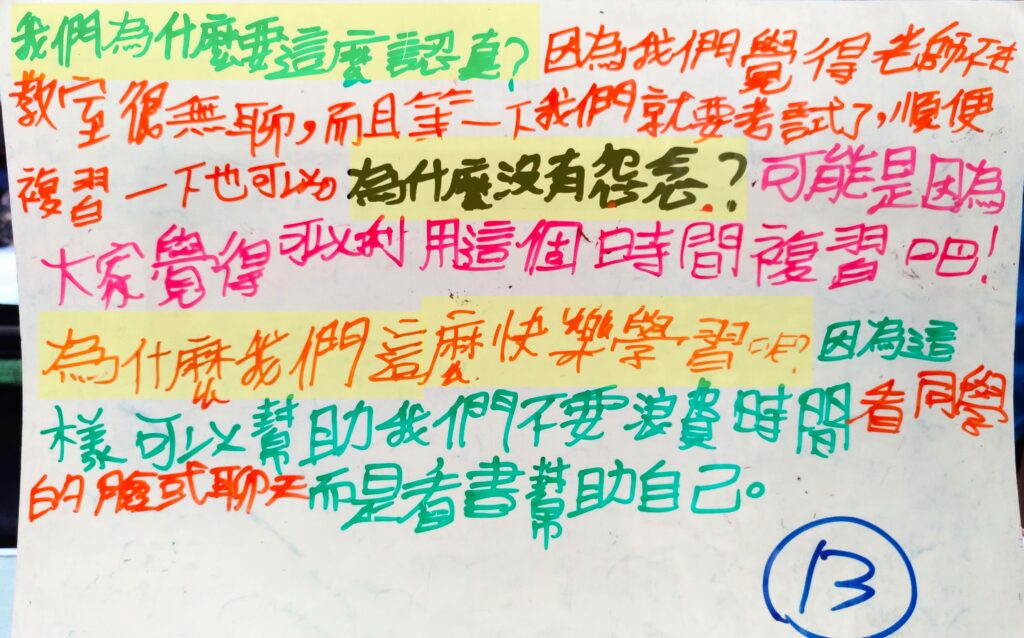 我們為什麼要這麼認真?因為我們覺得老師不在
教室很無聊,而且等一下我們就要考試了,順便
複習一下也可以為什麼沒有怨念?可能是因為
大家覺得可以利用這個時間複習吧!
為什麼我們這麼快樂學習呢?因為這
樣可以幫助我們不要浪費時間看同學
的臉或聊天而是看書幫助自己。
13